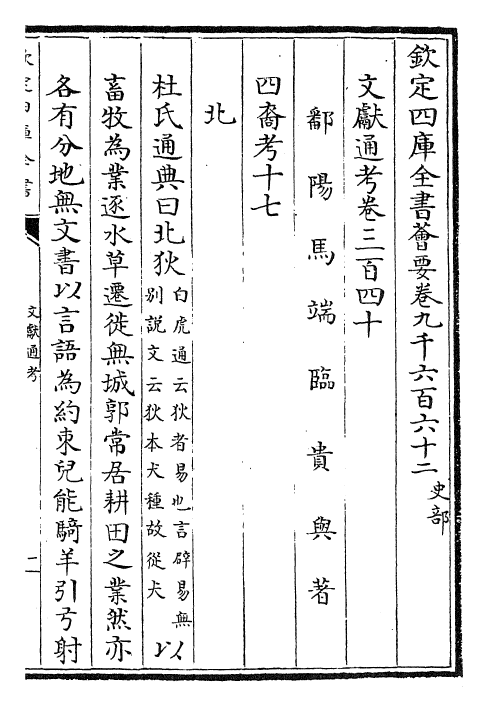 欽定四庫全書薈要卷九千六百六十二 史部
文獻通考卷三百四十
鄱陽馬端臨貴與著
四裔考十七
北
杜氏通典曰北狄白虎通云狄者易也言辟易無別説文云狄本犬種故從犬以
畜牧為業逐水草遷徙無城郭常居耕田之業然亦
各有分地無文書以言語為約束兒能騎羊引弓射
欽定四庫全書
文獻通考